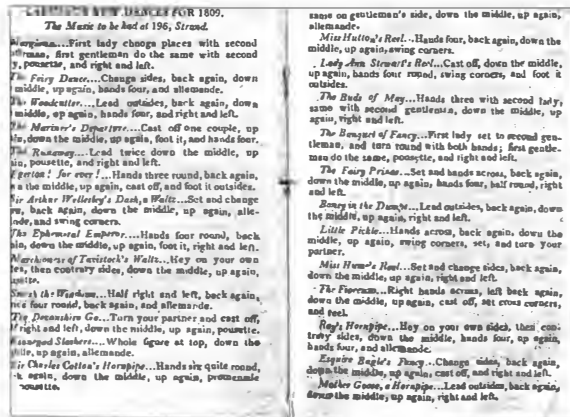 DANCES FOR 1809.
The Music to be had at 196, Strand.
....First lady change places with second
first gentleman do the same with second
pousette, and right and left.
The Fairy Dance....Change sides, back again, down
middle, up again, hands four, and allemande.
The Woodcutter....Lead outsides, back again, down
middle, up again, hands four, and right and left.
The Mariner's Departure....Cast off one couple, up
down the middle, up again, foot it, and hands four.
The Runaway....Lead twice down the middle, up
pousette, and right and left.
Egerton! for ever!...Hands three round, back again,
the middle, up again, cast off, and foot it outsides.
Sir Arthur Wellesley's Dash, a Waltz...Set and change
back again, down the middle, up again, alle-
and swing corners.
The Ephemeral Emperor....Hands four round, back
down the middle, up again, foot it, right and left.
Marchioness of Tavistock's Waltz...Hey on your own
then contrary sides, down the middle, up again,
the ...Half right and left, back again,
four round, back again, and allemande.
The Devonshire Go...Turn your partner and cast off,
right and left, down the middle, up again, pousette.
....Whole figure at top, down the
up again, allemande.
Sir Charles Cotton's Hornpipe...Hands six quite round,
again, down the middle, up again, promenade
pousette.
same on gentleman's side, down the middle, up again,
allemande.
Miss Hutton's Reel...Hands four, back again, down the
middle, up again, swing corners.
Lady Ann Stewart's Reel...Cast off, down the middle,
up again, hands four round, swing corners, and foot it
outsides.
The Buds of May...Hands three with second lady;
same with second gentleman, down the middle, up
again, right and left.
The Bouquet of Fancy...First lady set to second gen-
tleman, and turn round with both hands; first gentle-
man do the same, pousette, and right and left.
The Fairy Prince...Set and hands across, back again,
down the middle, up again, hands four, half round, right
and left.
Boney in the Dumps...Lead outsides, back again, down
the middle, up again, right and left.
Little Pickle...Hands across, back again, down the
middle, up again, swing corners, set, and turn your
partner.
Miss Hume's Reel...Set and change sides, back again,
down the middle, up again, right and left.
The ...Right hands across, left back again,
down the middle, up again, cast off, set cross corners,
and reel.
Ray's Hornpipe...Hey on your own sides, then con-
trary sides, down the middle, hands four, up again,
hands four, and allemande.
Esquire Fancy...Change sides, back again,
down the middle, up again, cast off, and right and left.
Mother Goose, a Hornpipe...Lead outsides, back again,
down the middle, up again, right and left.